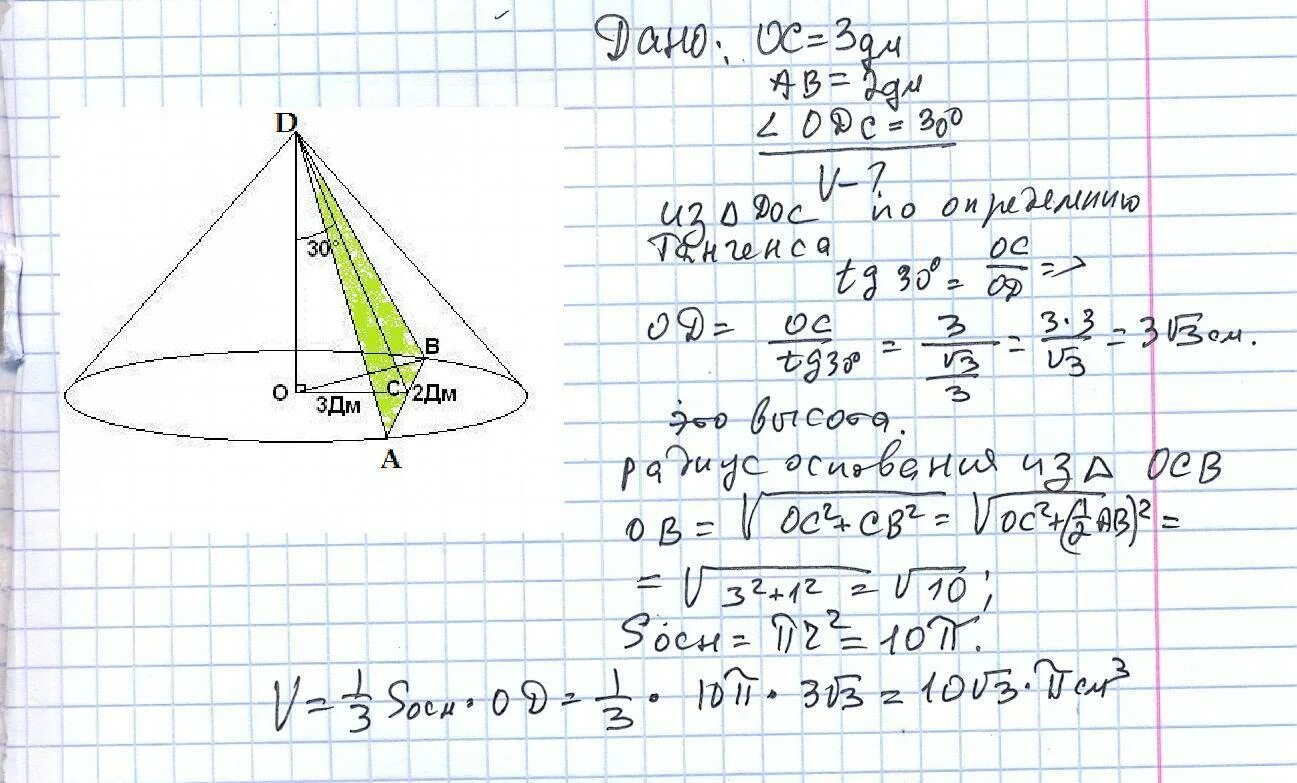 Дано: OC = 3дм
AB = 2дм
∠ ODC = 30°
V - ?
из Δ DOC по определению
Тангенса
tg 30° = OC/OD =>
OD = OC/tg30° = 3/(√3/3) = 3·3/√3 = 3√3 см.
это высота.
радиус основания из Δ OCB
OB = √(OC² + CB²) = √(OC² + (1/2 AB)²) =
= √(3² + 1²) = √10;
Sосн = πr² = 10π.
V = 1/3 Sосн · OD = 1/3 · 10π · 3√3 = 10√3 · π см³
D
30°
B
O
C
2Дм
3Дм
A